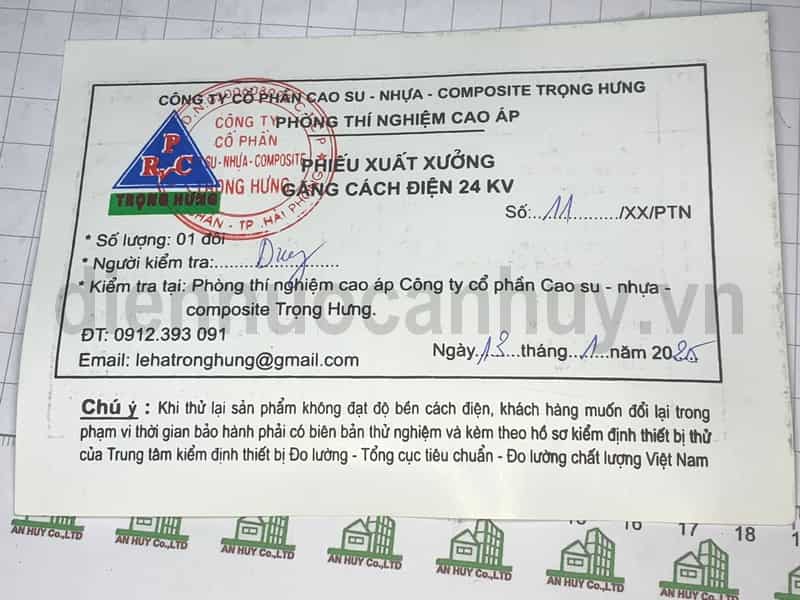 CÔNG TY CỔ PHẦN CAO SU - NHỰA - COMPOSITE TRỌNG HƯNG
PHÒNG THÍ NGHIỆM CAO ÁP
CÔNG TY
CỔ PHẦN
SU-NHỰA-COMPOSITE
TRỌNG HƯNG
TP.HẢI PHÒNG
P
R C
TRỌNG HƯNG
PHIẾU XUẤT XƯỞNG
GĂNG CÁCH ĐIỆN 24 KV
Số:..11........../XX/PTN
* Số lượng: 01 đôi
* Người kiểm tra:..................
* Kiểm tra tại: Phòng thí nghiệm cao áp Công ty cổ phần Cao su - nhựa -
composite Trọng Hưng.
ĐT: 0912.393 091
Email: lehatronghung@gmail.com
Ngày.13...tháng..1...năm 2025
diennuocanhuy.vn
Chú ý : Khi thử lại sản phẩm không đạt độ bền cách điện, khách hàng muốn đổi lại trong
phạm vi thời gian bảo hành phải có biên bản thử nghiệm và kèm theo hồ sơ kiểm định thiết bị thử
của Trung tâm kiểm định thiết bị Đo lường - Tổng cục tiêu chuẩn - Đo lường chất lượng Việt Nam
16 17 18
AN HUY Co.,LTD
AN HUY Co.,LTD
AN HUY Co.,LTD
AN HUY Co.,LTD
AN HUY Co.,LTD
AN HUY Co.,LTD
AN HUY Co.,LTD